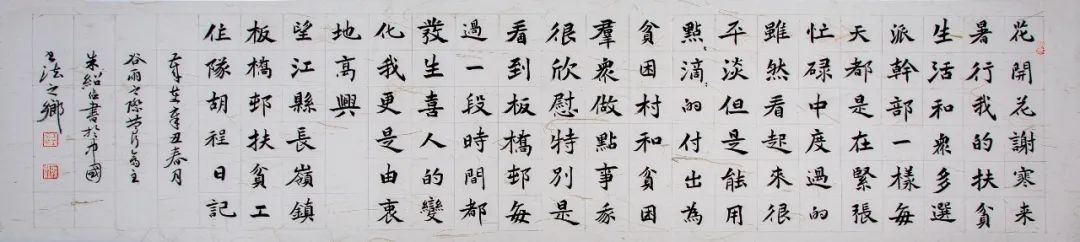 花開花謝寒来
暑行我的扶貧
生活和衆多選
派幹部一樣每
天都是在緊張
忙碌中度過的
雖然看起来很
平淡但是能用
點滴的付出為
貧困村和貧困
羣衆做點事我
很欣慰特别是
看到板橋邨每
過一段時間都
發生喜人的變
化我更是由衷
地高興
望江縣長嶺鎮
板橋邨扶貧工
作隊胡程日記
辛丑春月
谷雨之際主
朱紹書於中國
書法之鄉